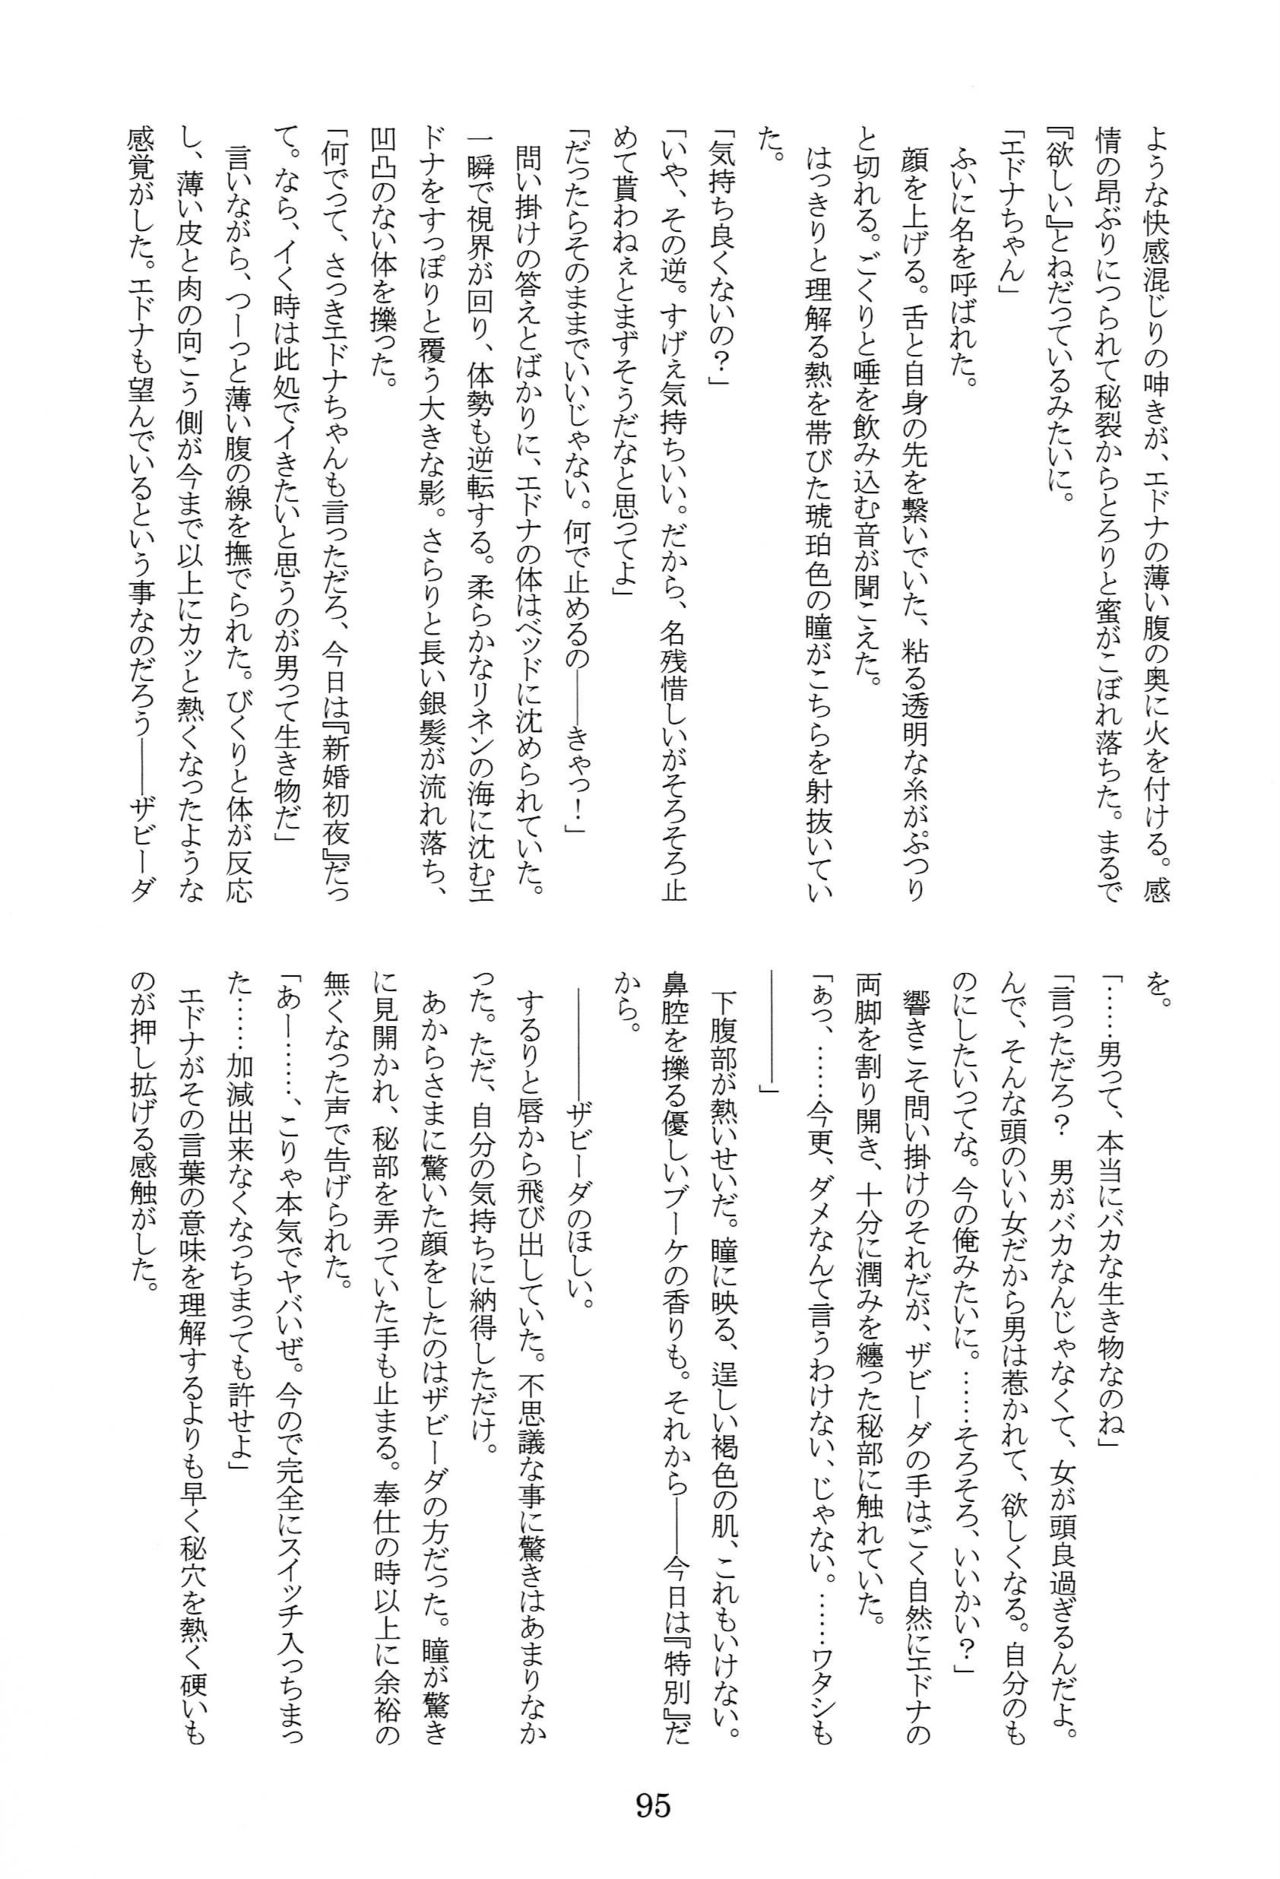 ような快感混じりの呻きが、エドナの薄い腹の奥に火を付ける。感
情の昂ぶりにつられて秘裂からとろりと蜜がこぼれ落ちた。まるで
『欲しい』とねだっているみたいに。
「エドナちゃん」
ふいに名を呼ばれた。
顔を上げる。舌と自身の先を繋いでいた、粘る透明な糸がぷつり
と切れる。ごくりと唾を飲み込む音が聞こえた。
はっきりと理解る熱を帯びた琥珀色の瞳がこちらを射抜いてい
た。
「気持ち良くないの？」
「いや、その逆。すげぇ気持ちいい。だから、名残惜しいがそろそろ止
めて貰わねぇとまずそうだなと思ってよ」
「だったらそのままでいいじゃない。何で止めるの――きゃっ！」
問い掛けの答えとばかりに、エドナの体はベッドに沈められていた。
一瞬で視界が回り、体勢も逆転する。柔らかなリネンの海に沈むエ
ドナをすっぽりと覆う大きな影。さらりと長い銀髪が流れ落ち、
凹凸のない体を擽った。
「何でって、さっきエドナちゃんも言っただろ、今日は『新婚初夜』だっ
て。なら、イく時は此処でイきたいと思うのが男って生き物だ」
言いながら、つーっと薄い腹の線を撫でられた。びくりと体が反応
し、薄い皮と肉の向こう側が今まで以上にカッと熱くなったような
感覚がした。エドナも望んでいるという事なのだろう――ザビーダ
を。
「……男って、本当にバカな生き物なのね」
「言っただろ？　男がバカなんじゃなくて、女が頭良過ぎるんだよ。
んで、そんな頭のいい女だから男は惹かれて、欲しくなる。自分のも
のにしたいってな。今の俺みたいに。……そろそろ、いいかい？」
響きこそ問い掛けのそれだが、ザビーダの手はごく自然にエドナの
両脚を割り開き、十分に潤みを纏った秘部に触れていた。
「ぁっ、……今更、ダメなんて言うわけない、じゃない。……ワタシも
――――」
下腹部が熱いせいだ。瞳に映る、逞しい褐色の肌、これもいけない。
鼻腔を擽る優しいブーケの香りも。それから――今日は『特別』だ
から。
――――ザビーダのほしい。
するりと唇から飛び出していた。不思議な事に驚きはあまりなか
った。ただ、自分の気持ちに納得しただけ。
あからさまに驚いた顔をしたのはザビーダの方だった。瞳が驚き
に見開かれ、秘部を弄っていた手も止まる。奉仕の時以上に余裕の
無くなった声で告げられた。
「あー……、こりゃ本気でヤバいぜ。今ので完全にスイッチ入っちまっ
た……加減出来なくなっちまっても許せよ」
エドナがその言葉の意味を理解するよりも早く秘穴を熱く硬いも
のが押し拡げる感触がした。
95